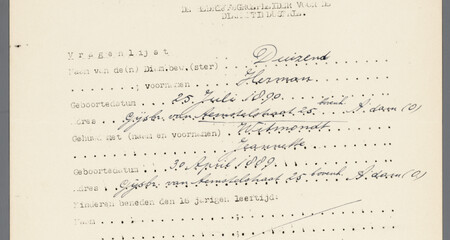 DE
V r a g e n l i j s t
Naam van de(n) Diam.bew.(ster) Duizend
; voornamen Herman
Geboortedatum 25 Juli 1890
Adres Gijsbr. van Aemstelstraat 25 A'dam (O)
Gehuwd met (naam en voornamen) Witmondt
Jeannette
Geboortedatum 30 April 1889
Adres Gijsbr. van Aemstelstraat 25 A'dam (O)
Kinderen beneden den 16 jarigen leeftijd:
Naam